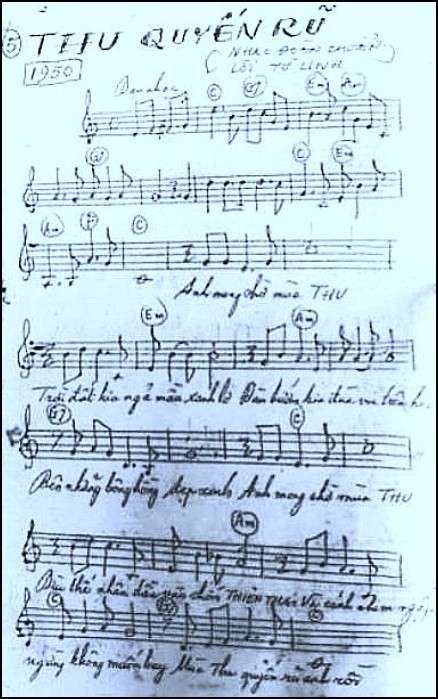 5 THU QUYẾN RŨ
1950
(NHẠC ĐOÀN CHUẨN
LỜI TỪ LINH)
Dạo nhạc C G7 Em Am
C Em
Am C
Anh mong chờ mùa THU
Em Am
Trời đất kia ngả màu xanh lơ Đàn bướm kia đùa vui trên
G7 C
Bên những bông hồng đẹp xinh Anh mong chờ mùa THU
Am
thế nhân dần vào chốn THIÊN THAI Và cánh chim
C G7
ngừng không muốn bay Mùa Thu quyến rũ anh rồi